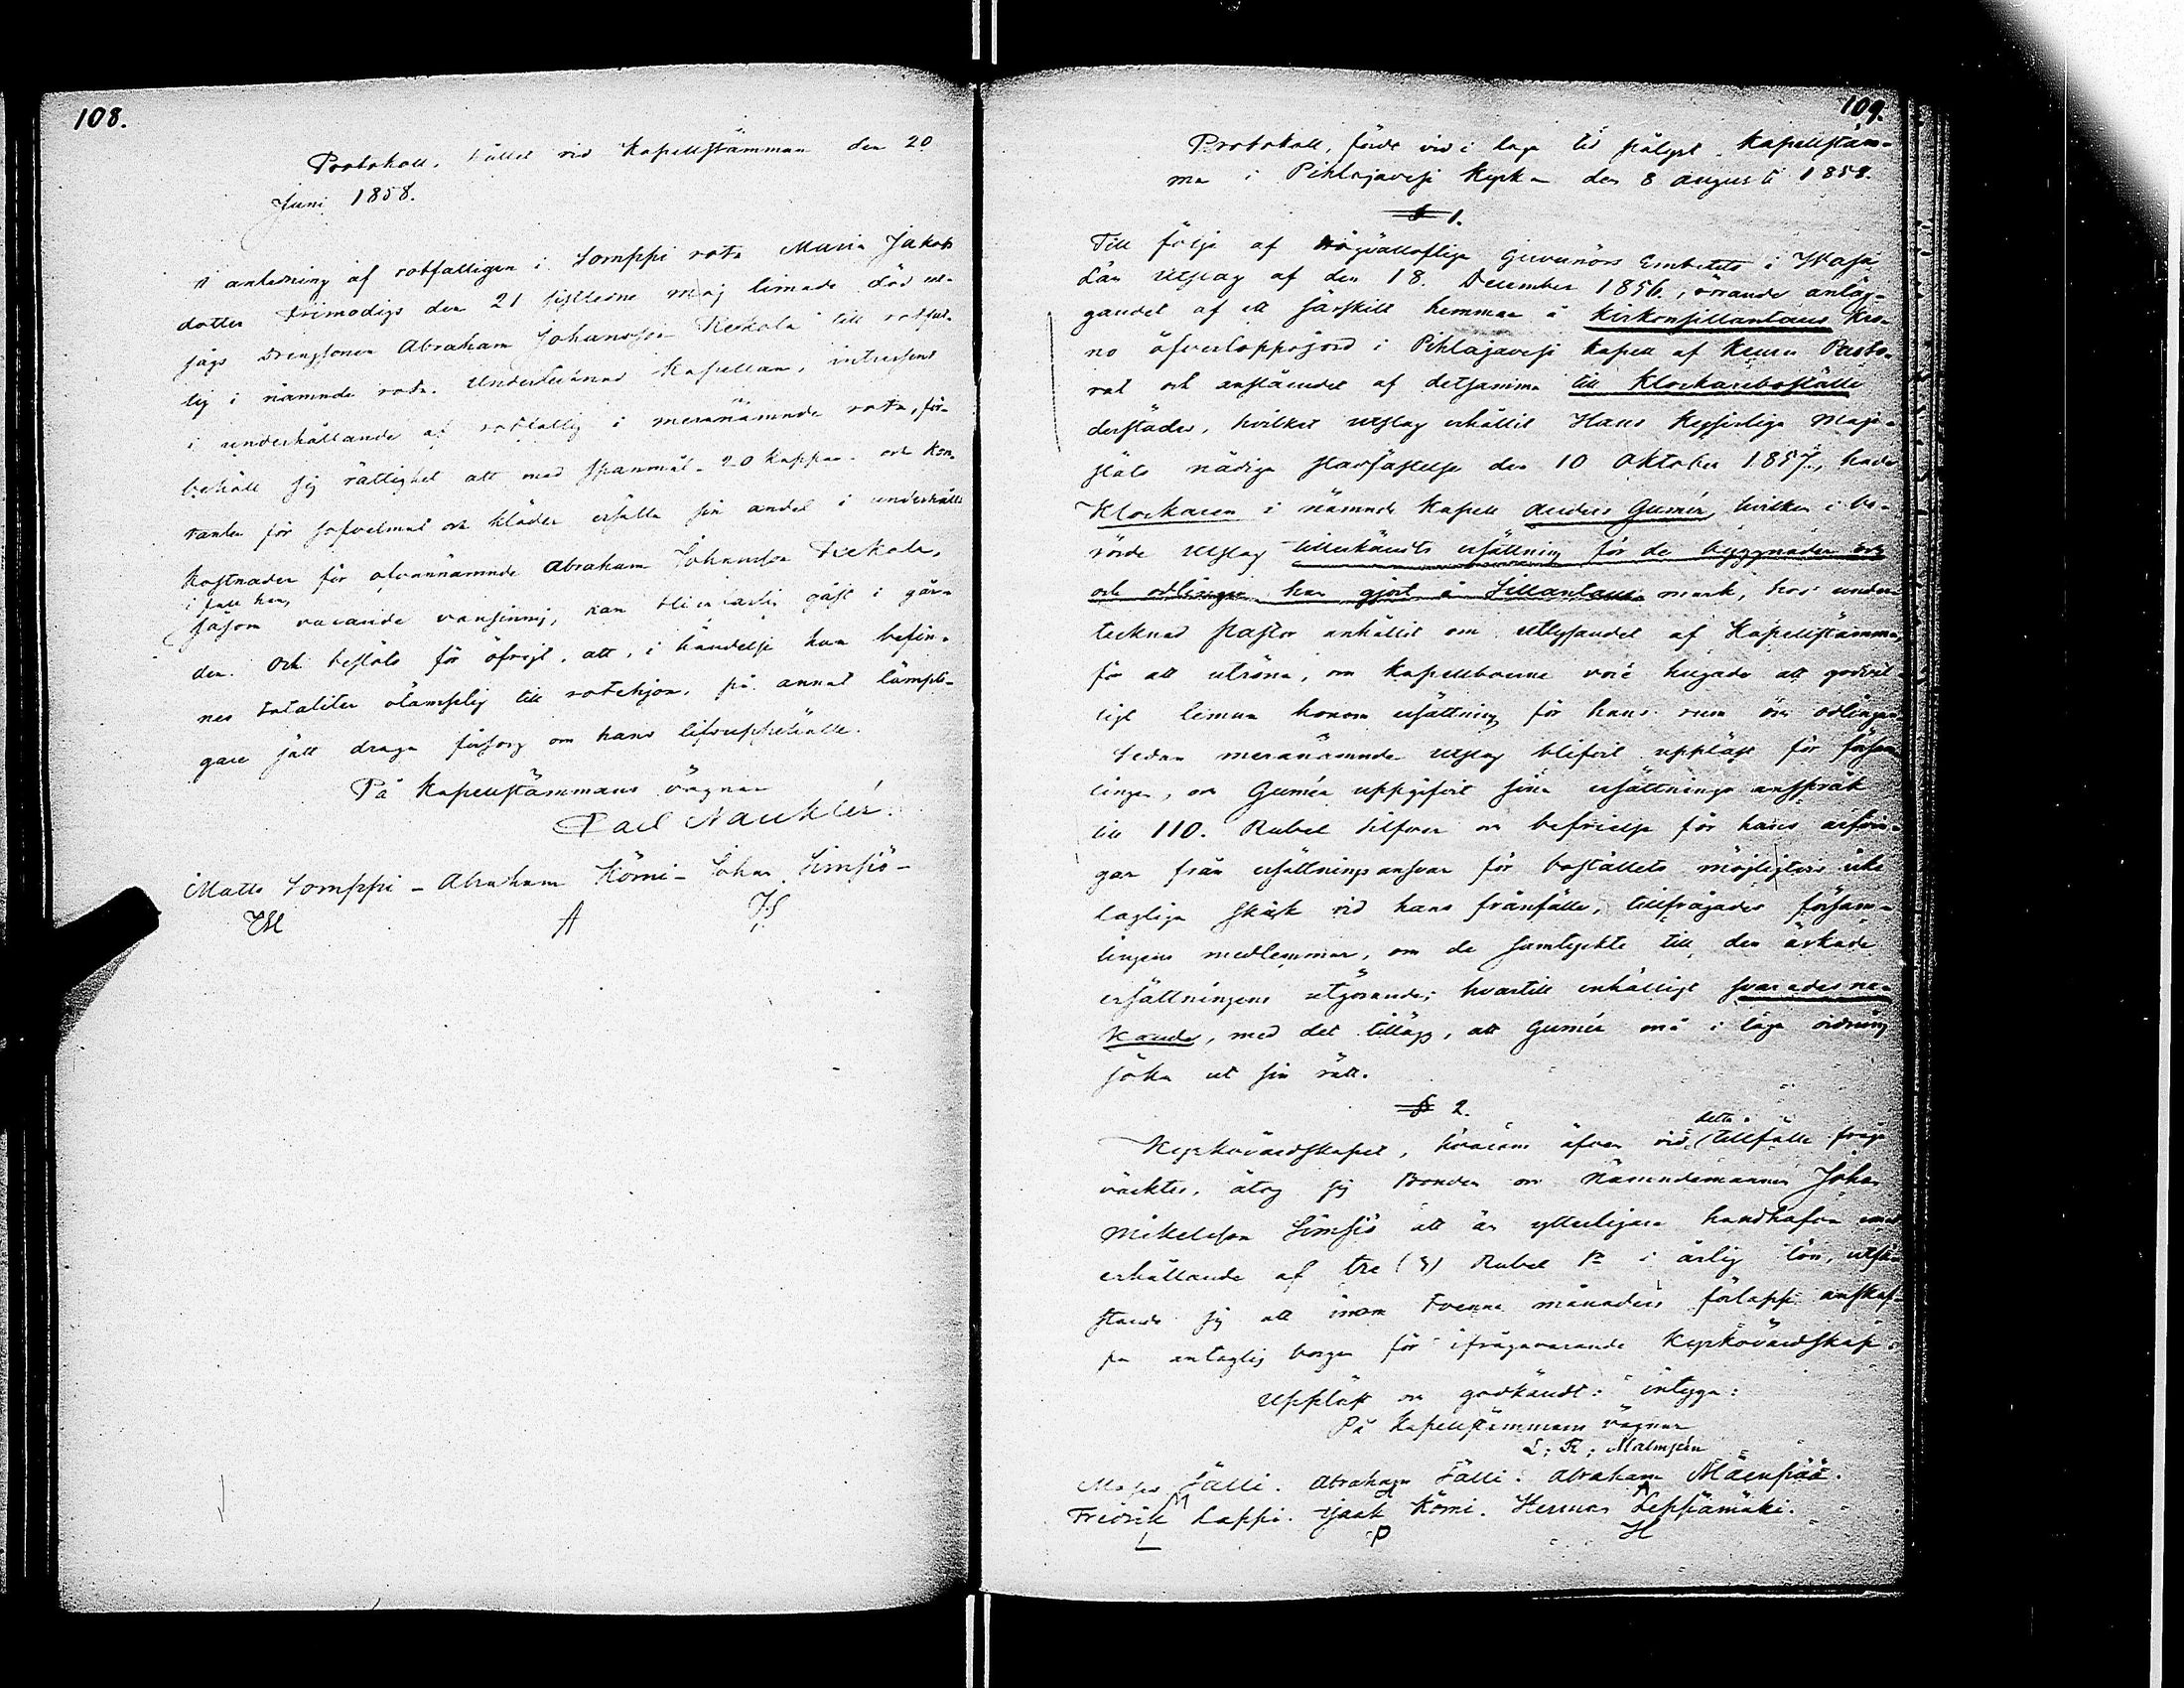 108.
Protokoll, hållet vid Kapellstämman den 20
Juni 1858.
I anledning af rotfattigen i Somppi rota Maria Jakobs
dotter Frimodigs den 21 sistledne Maj timade död ut-
sågs Drengsonen Abraham Johansson Keskola till rotfat-
tig i nämnde rota. Undertecknad Kapellan, intressent
i underhållande af rotfattig i meranämnde rota, för-
behöll sig rättighet att med spanmål - 20 kappar - och kon-
tanter för sofvelmat och kläder erlätta sin andel i underhålls
kostnader för ofvannämnde Abraham Johansson Keskola,
i fall han,
såsom varande vansinnig, kan bli en farlig gäst i går-
den. Och beslöts för öfrigt, att, i händelse han befin-
nes totaliter olämpelig till rotehjon, på annat lämpli-
gare sätt draga försorg om hans lifsuppehälle.
På Kapellstämmans vägnar
Karl Nauklér.
Matts Somppi - Abraham Kömi - Johan Simsiö -
A JS
109.
Protokoll, fördt vid i laga tid pålyst Kapellstäm-
ma i Pihlajavesi kyrka den 8 augusti 1858.
§ 1.
Till följe af Högvällofliga Guvernörs Embetets i Wasa
Län Utslag af den 18. December 1856, rörande anläg-
gandet af ett särskilt hemman å Kirkonsillantaus kro-
no öfverloppsjord i Pihlajavesi Kapell af Keuru Pasto-
rat och anslåendet af detsamma till Klockareboställe
derstädes, hvilket utslag erhållit Hans Kejserliga Maje-
stäts nådiga stadfästelse den 10 Oktober 1857, hade
Klockaren i nämnde Kapell Anders Gumér, hvilken i be-
rörde Utslag tillerkändts ersättning för de byggnader och
och odlingar han gjort å Sillantaus mark, hos under-
tecknad Pastor anhållit om utlysandet af Kapellstämma
för att utröna, om Kapellboerne vore hugade att godvil-
ligt lemna honom ersättning för hans rum och odlingar
Sedan meranämnde Utslag blifvit uppläst för försam-
lingen, och Gumér uppgifvit sina ersättnings anspråk
till 110. Rubel Silfver och befrielse för hans arfvin-
gar från ersättningsansvar för boställets möjligtvis icke
lagliga skick vid hans frånfälle, tillfrågades försam-
lingens medlemmar, om de samtyckte till den äskade
ersättningens utgörande; hvartill enhälligt svarades ne-
kande, med det tillägg, att Gumér må i laga ordning
söka ut sin rätt.
§ 2.
detta
Kyrkovärdskapet, hvarom äfven vid tillfälle fråga
väcktes, åtog sig Bonden och Nämndemannen Johan
Mikelsson Simsiö att än ytterligare handhafva emot
erhållande af tre (3) Rubel Sr i årlig lön, utfä-
stande sig att inom tvenne månaders förlopp anskaf-
fa antaglig borgen för ifrågavarande Kyrkovärdskap.
Uppläst och godkändt: intyga:
På Kapellstämmans vägnar
L: F: Malmgrén
Moses Fälli. Abraham Fälli. Abraham Mäenpää.
M A A
Fredrik Lappi. Isaak Kömi. Herman Leppämäki.
L P H